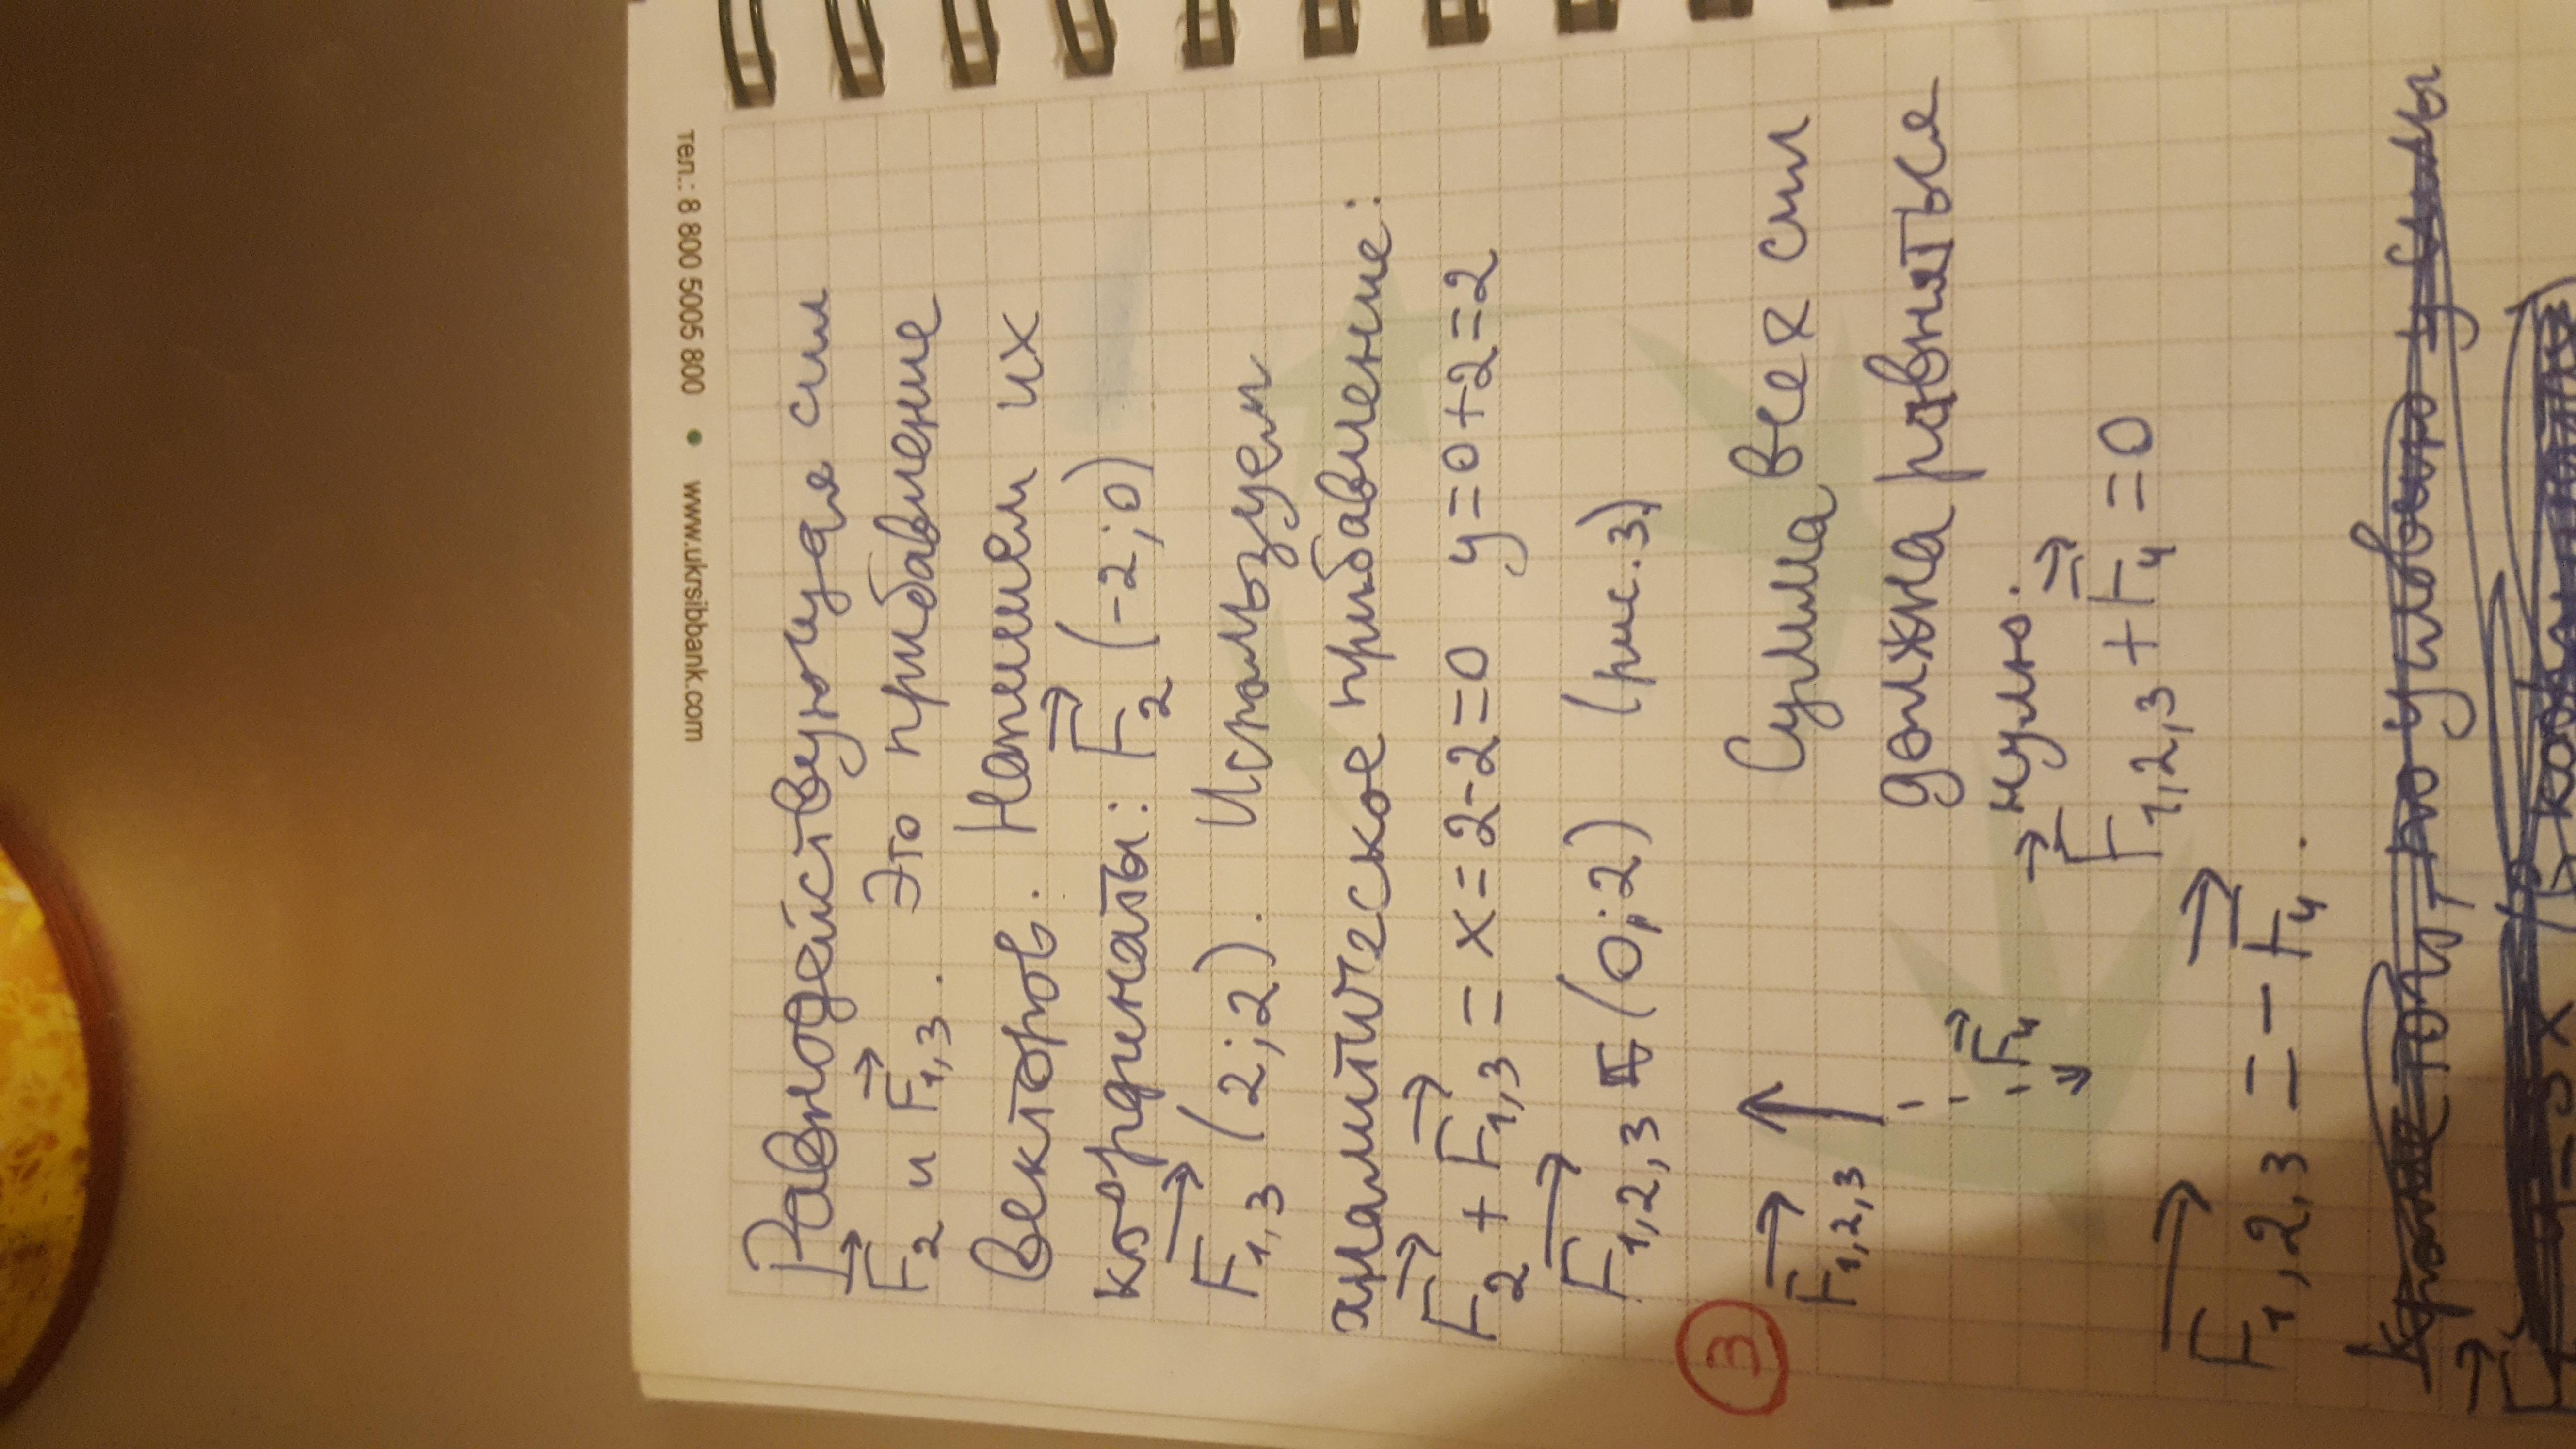 тел.: 8 800 5005 800 • www.ukrsibbank.com
Равнодействующая сил
F₂ и F₁,₃. Это прибавление
векторов. Напишем их
координаты: F₂ (-2;0)
F₁,₃ (2;2). Используем
аналитическое прибавление:
F₂ + F₁,₃ = x=2-2=0 y=0+2=2
F₁,₂,₃ (0;2) (рис.3)
3
F₁,₂,₃
F₄
Сумма всех сил
должна ровняться
нулю.
F₁,₂,₃ + F₄ =0
F₁,₂,₃ = - F₄.
Кроме того, по условию у силы